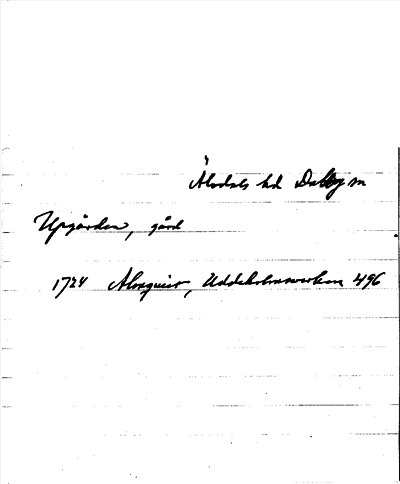 Älvdals hd Dalby sn
Uppgården, gård
1724 Almquist, Uddeholmsverken 496